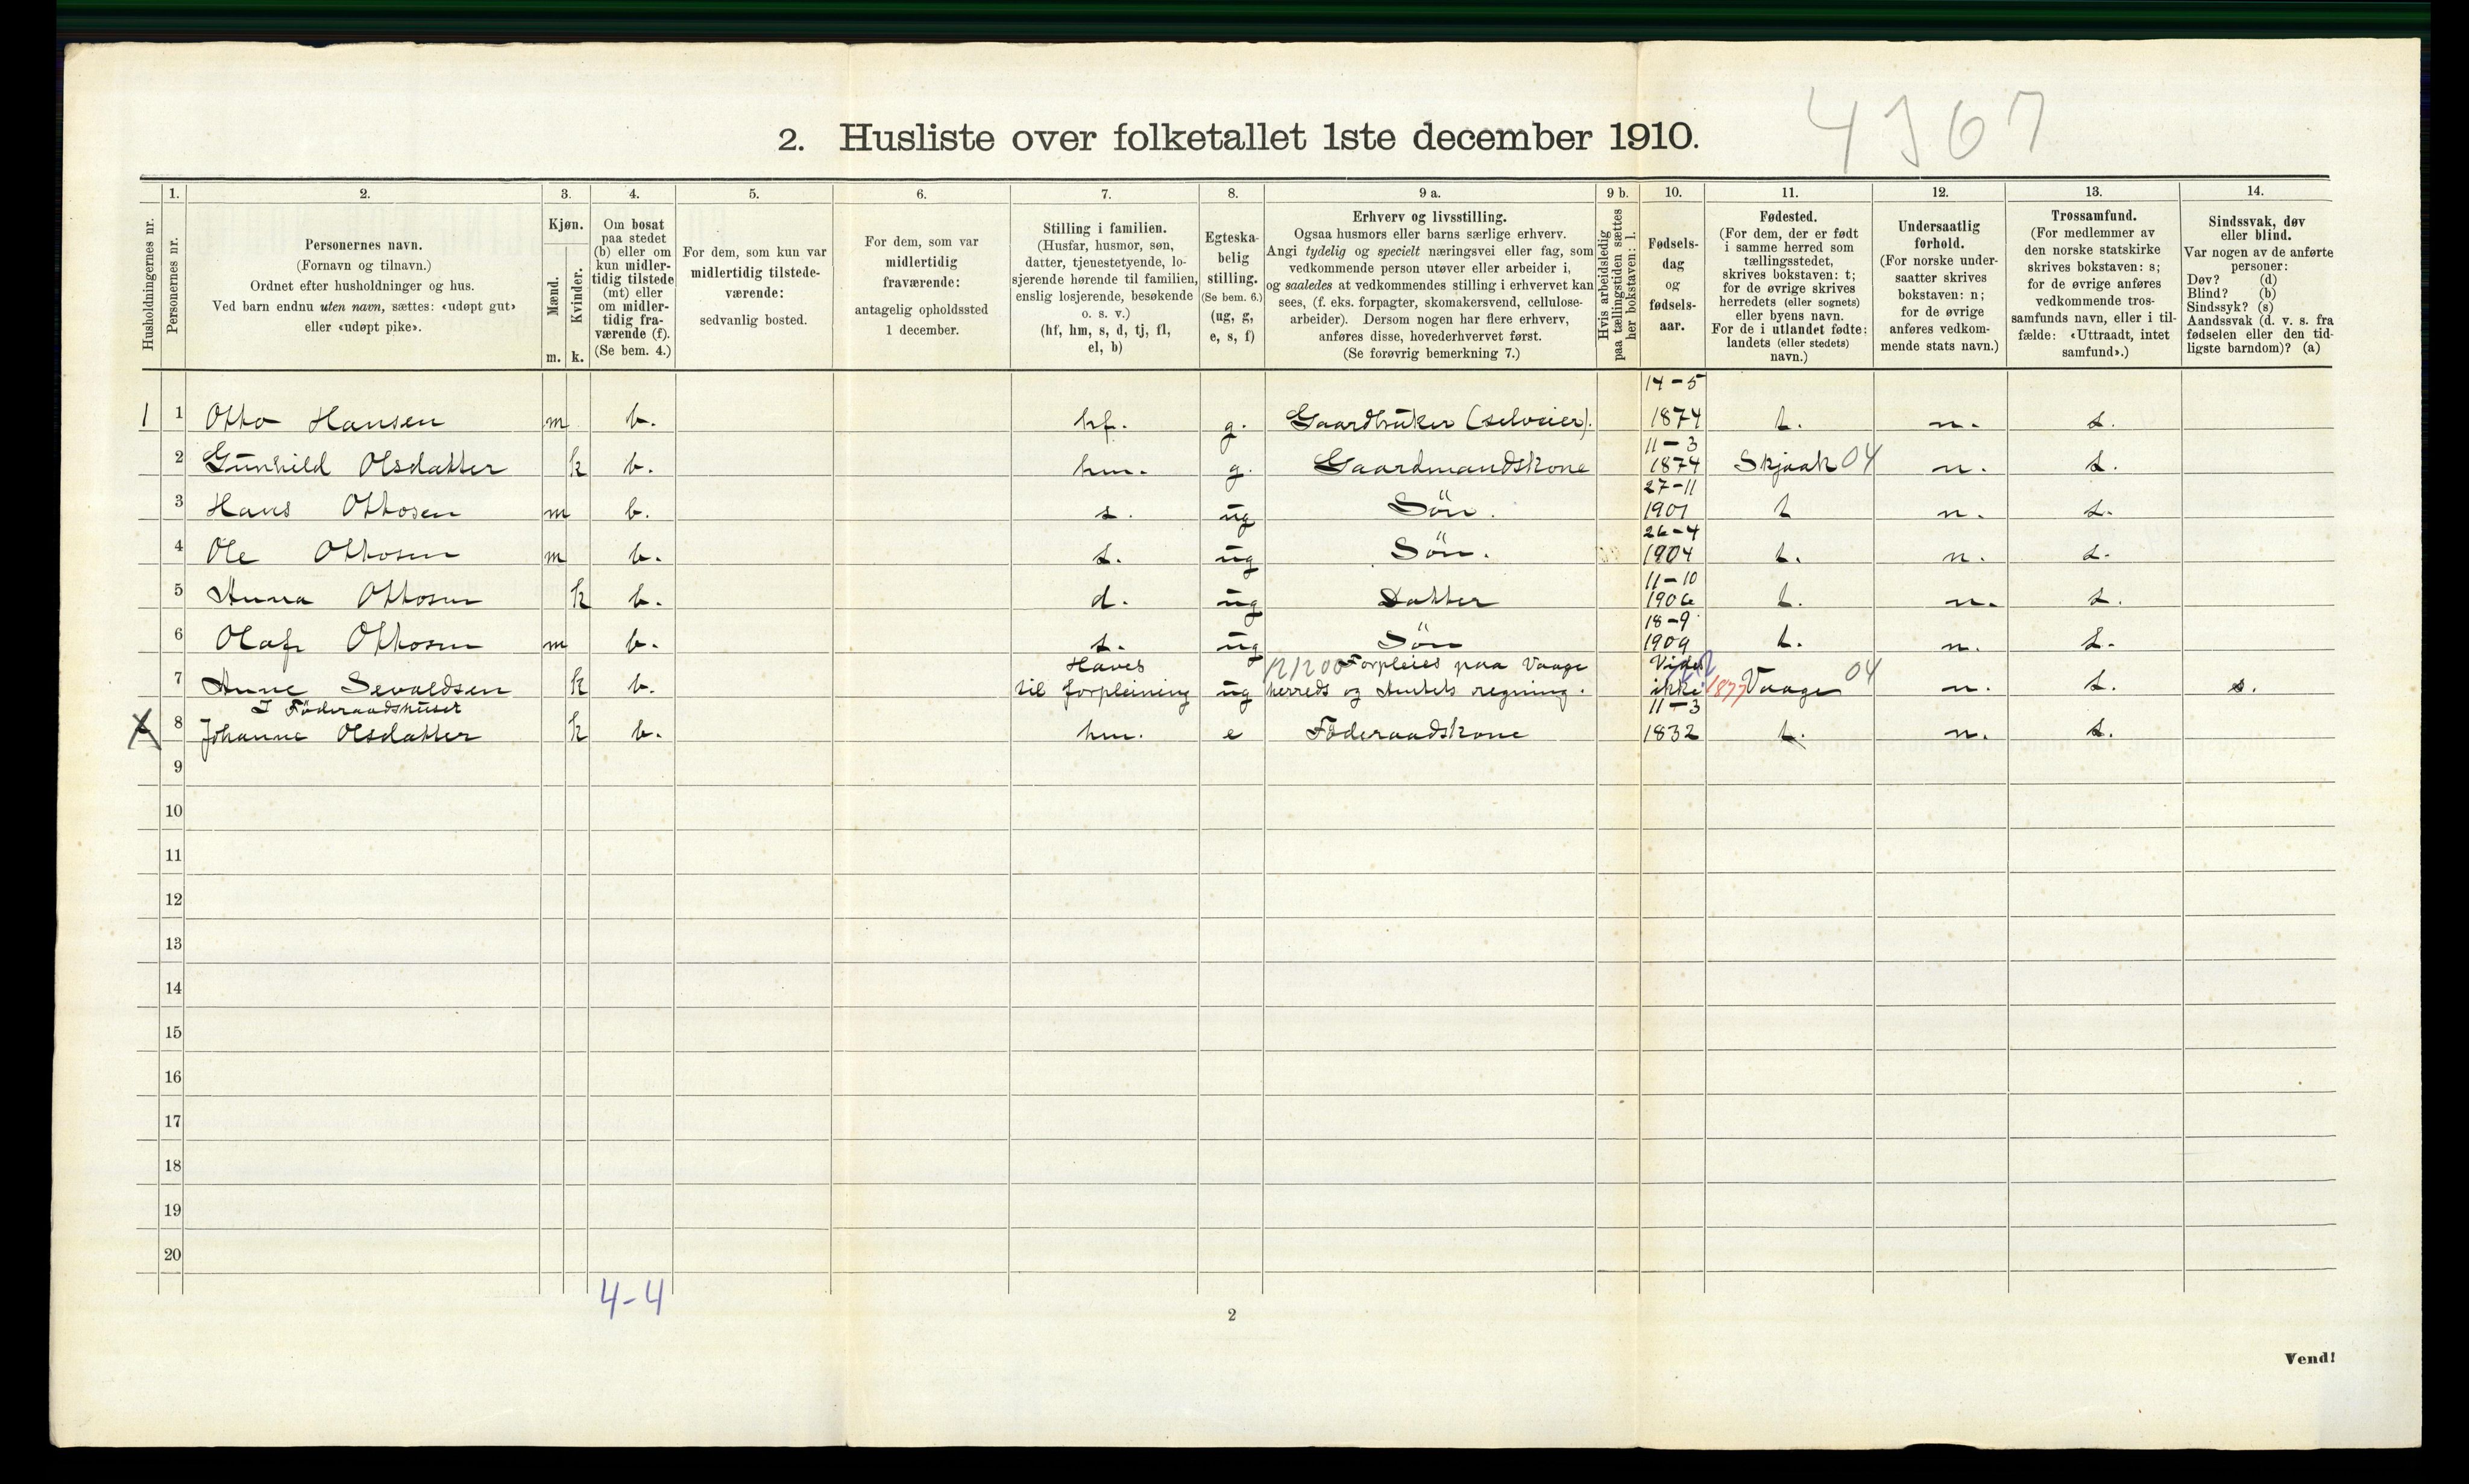 4367
2. Husliste over folketallet 1ste december 1910.
Husholdningernes nr.
1.
Personernes nr.
2.
Personernes navn.
(Fornavn og tilnavn.)
Ordnet efter husholdninger og hus.
Ved barn endnu uten navn, sættes: «udøpt gut»
eller «udøpt pike».
3.
Kjøn.
Mænd.
Kvinder.
m. k.
4.
Om bosat
paa stedet
(b) eller om
kun midler-
tidig tilstede
(mt) eller
om midler-
tidig fra-
værende (f).
(Se bem. 4.)
5.
For dem, som kun var
midlertidig tilstede-
værende:
sedvanlig bosted.
6.
For dem, som var
midlertidig
fraværende:
antagelig opholdssted
1 december.
7.
Stilling i familien.
(Husfar, husmor, søn,
datter, tjenestetyende, lo-
sjerende hørende til familien,
enslig losjerende, besøkende
o. s. v.)
(hf, hm, s, d, tj, fl,
el, b)
8.
Egteska-
belig
stilling.
(Se bem. 6.)
(ug, g,
e, s, f)
9 a.
Erhverv og livsstilling.
Ogsaa husmors eller barns særlige erhverv.
Angi tydelig og specielt næringsvei eller fag, som
vedkommende person utøver eller arbeider i,
og saaledes at vedkommendes stilling i erhvervet kan
sees, (f. eks. forpagter, skomakersvend, cellulose-
arbeider). Dersom nogen har flere erhverv,
anføres disse, hovederhvervet først.
(Se forøvrig bemerkning 7.)
9 b.
Hvis arbeidsledig
paa tællingstiden sættes
her bokstaven: l.
10.
Fødsels-
dag
og
fødsels-
aar.
11.
Fødested.
(For dem, der er født
i samme herred som
tællingsstedet,
skrives bokstaven: t;
for de øvrige skrives
herredets (eller sognets)
eller byens navn.
For de i utlandet fødte:
landets (eller stedets)
navn.)
12.
Undersaatlig
forhold.
(For norske under-
saatter skrives
bokstaven: n;
for de øvrige
anføres vedkom-
mende stats navn.)
13.
Trossamfund.
(For medlemmer av
den norske statskirke
skrives bokstaven: s;
for de øvrige anføres
vedkommende tros-
samfunds navn, eller i til-
fælde: «Uttraadt, intet
samfund».)
14.
Sindssvak, døv
eller blind.
Var nogen av de anførte
personer:
Døv? (d)
Blind? (b)
Sindssyk? (s)
Aandssvak (d. v. s. fra
fødselen eller den tid-
ligste barndom)? (a)
14-5
1 1 Otto Hansen m b. hf. g. Gaardbruker (selveier). 1874 t. n. s.
11-3
2 Gunhild Olsdatter k b. hm. g. Gaardmandskone 1874 Skjaak 04 n. s.
27-11
3 Hans Ottosen m b. s. ug Søn. 1901 t n. s.
26-4
4 Ole Ottosen m b. s. ug Søn. 1904 t. n. s.
11-10
5 Anna Ottosen k b. d. ug Datter 1906 t. n. s.
18-9
6 Olaf Ottosen m b. s. ug Søn 1909 t. n. s.
Haves 121200 Forpleies paa Vaage Vides
7 Anne Sevaldsen k b. til forpleining ug herreds og Amtets regning. ikke 1877 Vaage 04 n. s. s.
I Föderaadshuset 11-3
X 8 Johanne Olsdatter k b. hm. e Föderaadskone 1832 t. n. s.
9
10
11
12
13
14
15
16
17
18
19
20
4-4
2
Vend!